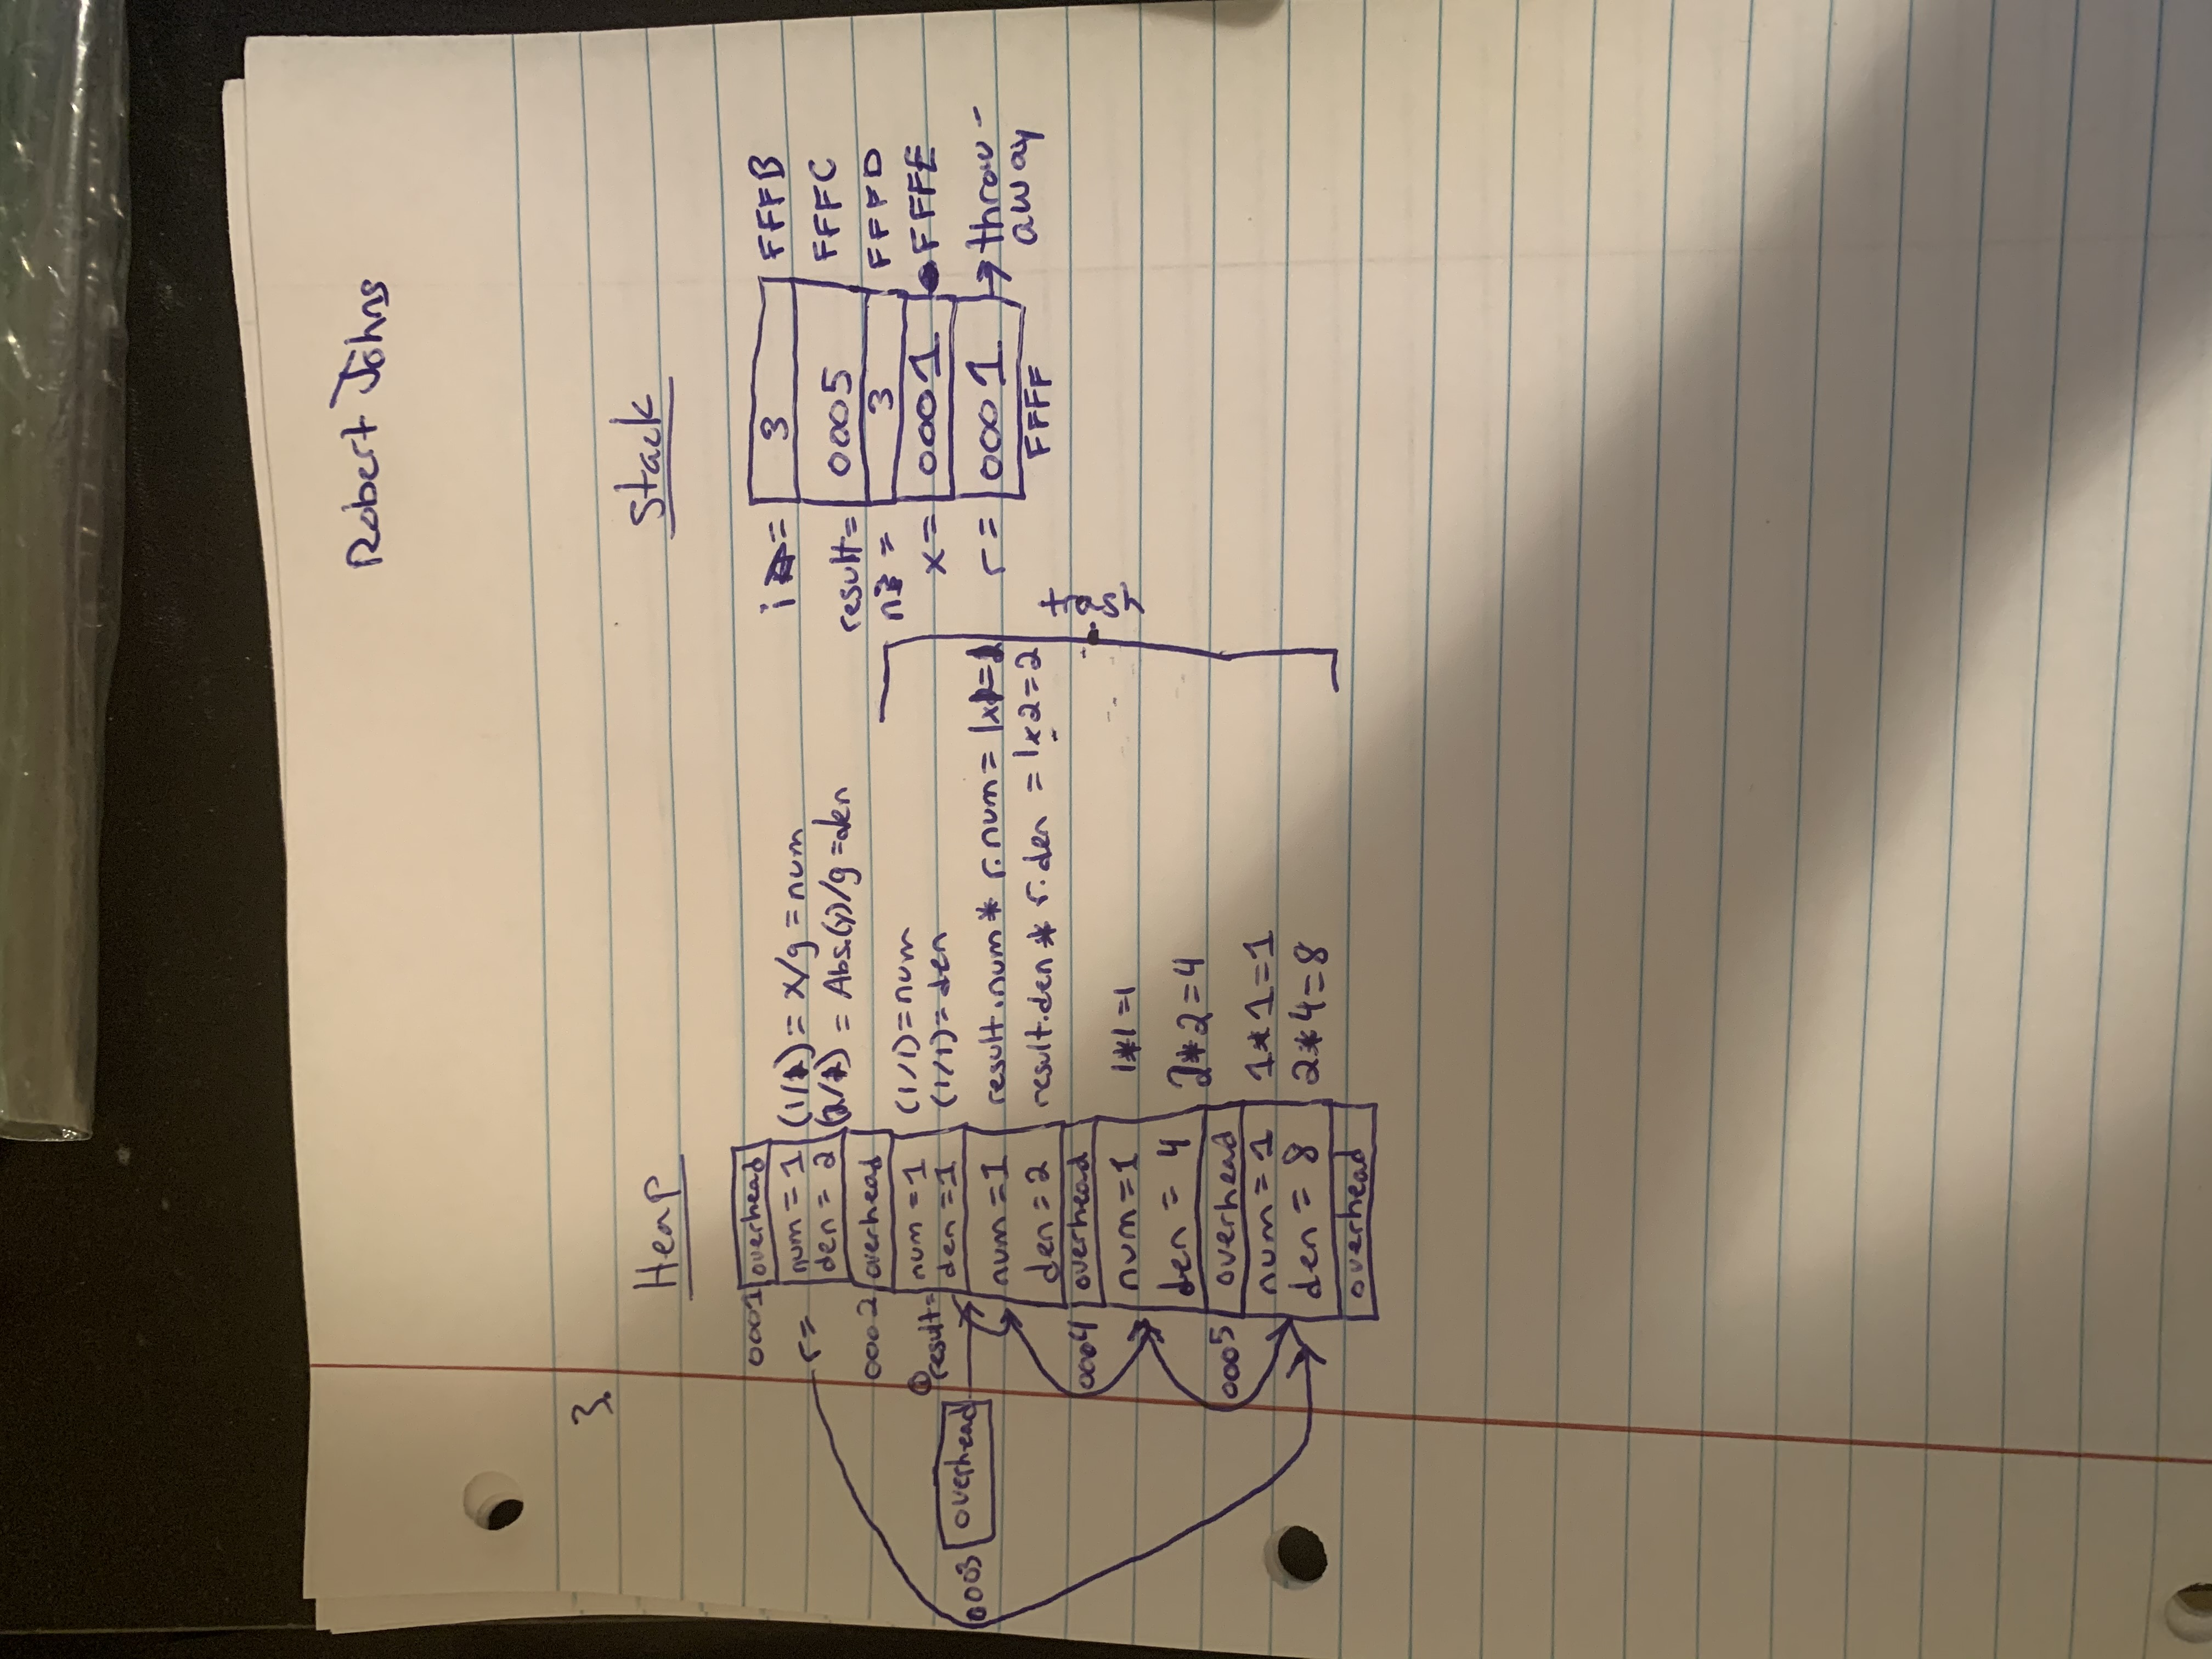 Robert Johns
3.
Heap
0001 overhead
r= num = 1 (1/1) = x/g = num
den = 2 (2/1) = Abs.(y)/g = den
0002 overhead
result= num = 1 (1/1) = num
den = 1 (1/1) = den
0003 overhead
num = 1 result.num * r.num = 1x1=1
den = 2 result.den * r.den = 1x2=2
0004 overhead
num = 1 1*1=1
den = 4 2*2=4
0005 overhead
num = 1 1*1=1
den = 8 2*4=8
overhead
Stack
i = 3 FFFB
result= 0005 FFFC
n = 3 FFFD
x= 0001 FFFE
r= 0001 → throw-
away
FFFF